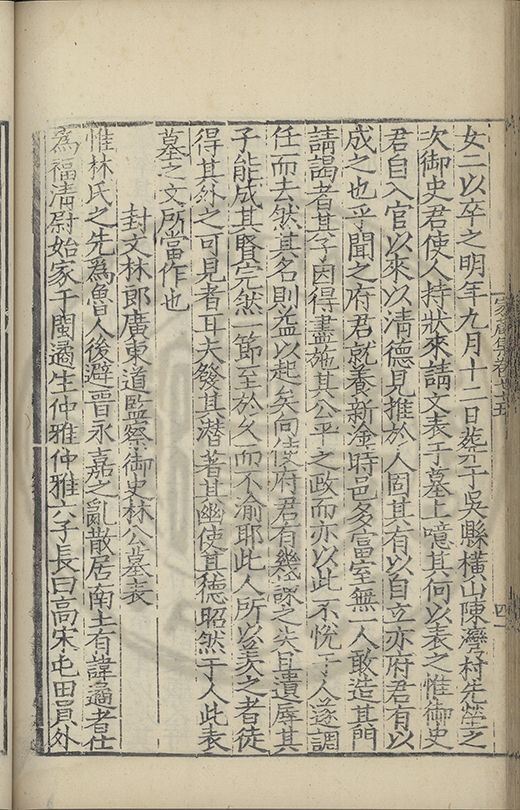 家藏集卷廿五
四
女二以卒之明年九月十二日葬于吳縣橫山陳灣村先塋之
次御史君使人持狀來請文表于墓上噫其何以表之惟御史
君自入官以來以清德見推於人固其有以自立亦府君有以
成之也乎聞之府君就養新淦時邑多富室無一人敢造其門
請謁者其子因得盡施其公平之政而亦以此不悅于人遂調
任而去然其名則益以起矣向使府君有幾微之失且遺辱其
子能成其賢完然一節至於久而不渝耶此人所以美之者徒
得其外之可見者耳夫發其潛著其幽使其德昭然于人此表
墓之文所當作也
封文林郎廣東道監察御史林公墓表
惟林氏之先為魯人後避晉永嘉之亂散居南土有諱遹者仕
為福清尉始家于閩遹生仲雅仲雅六子長曰高宋屯田員外